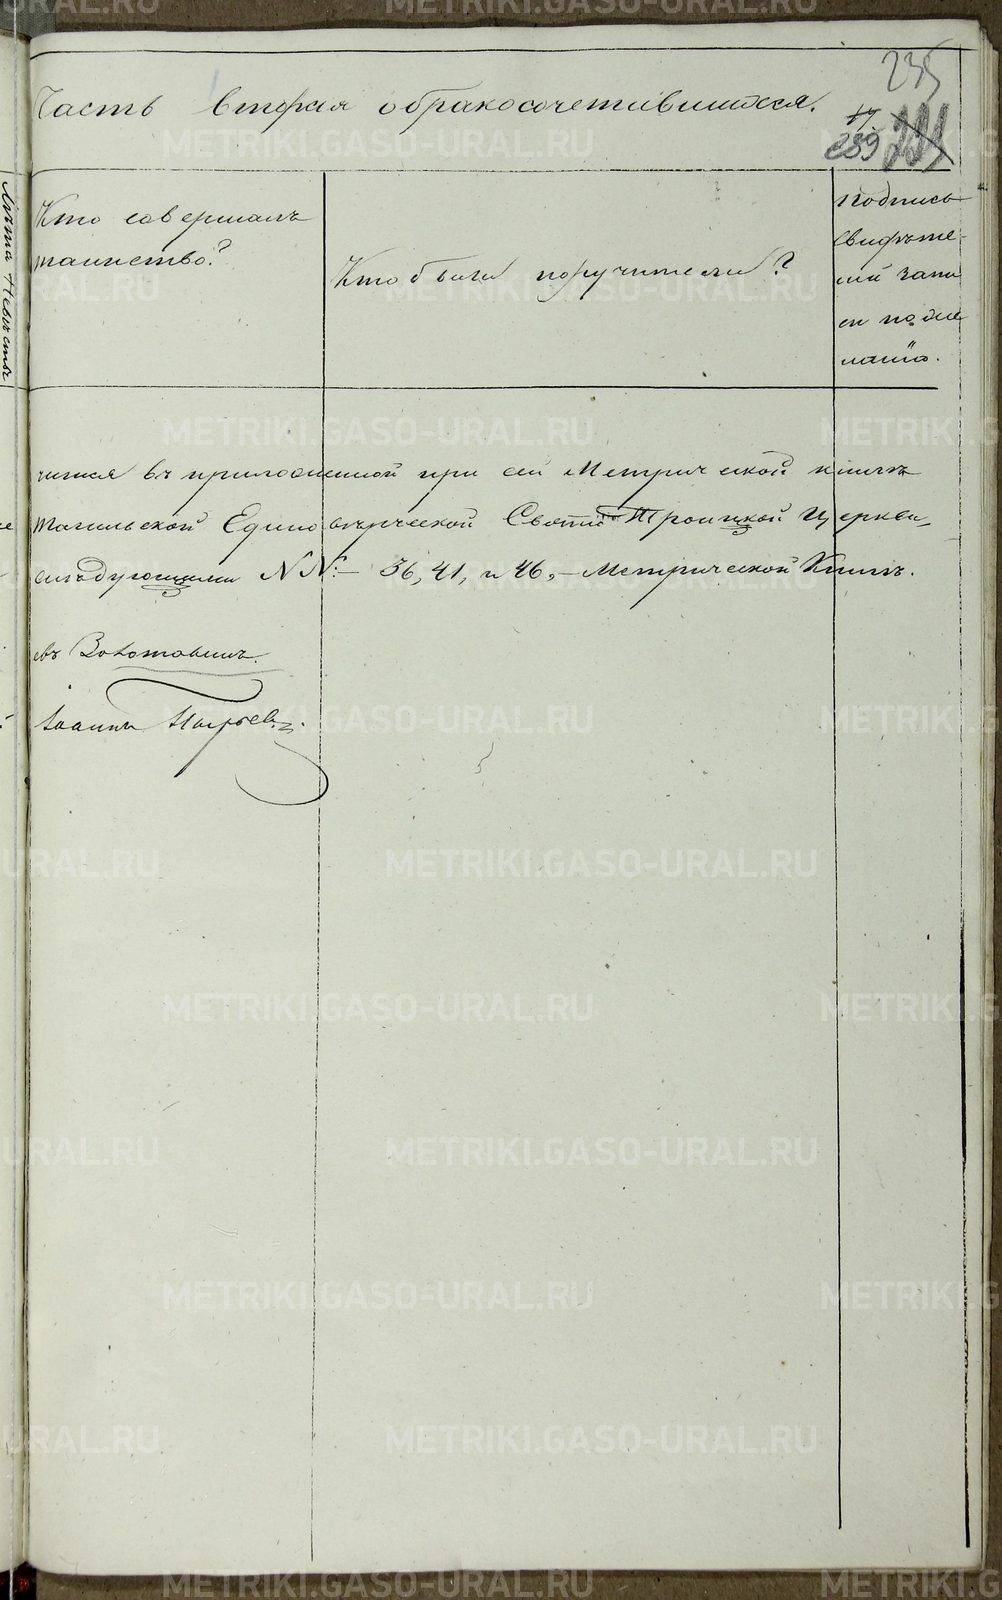 235
Часть вторая о бракосочетавшихся.
17.
239
Лѣта Невѣсты
Кто совершалъ
таинство?
Кто были поручители?
Подпись
свидѣте-
лей запи
си по же
ланію.
чится въ приложенной при сей Метрической книгѣ
тагильской Единовѣрческой Свято-Троицкой Церкви
слѣдующими NN:- 36, 41, и 46,- Метрической Книгѣ.
Іоаннъ
METRIKI.GASO-URAL.RU